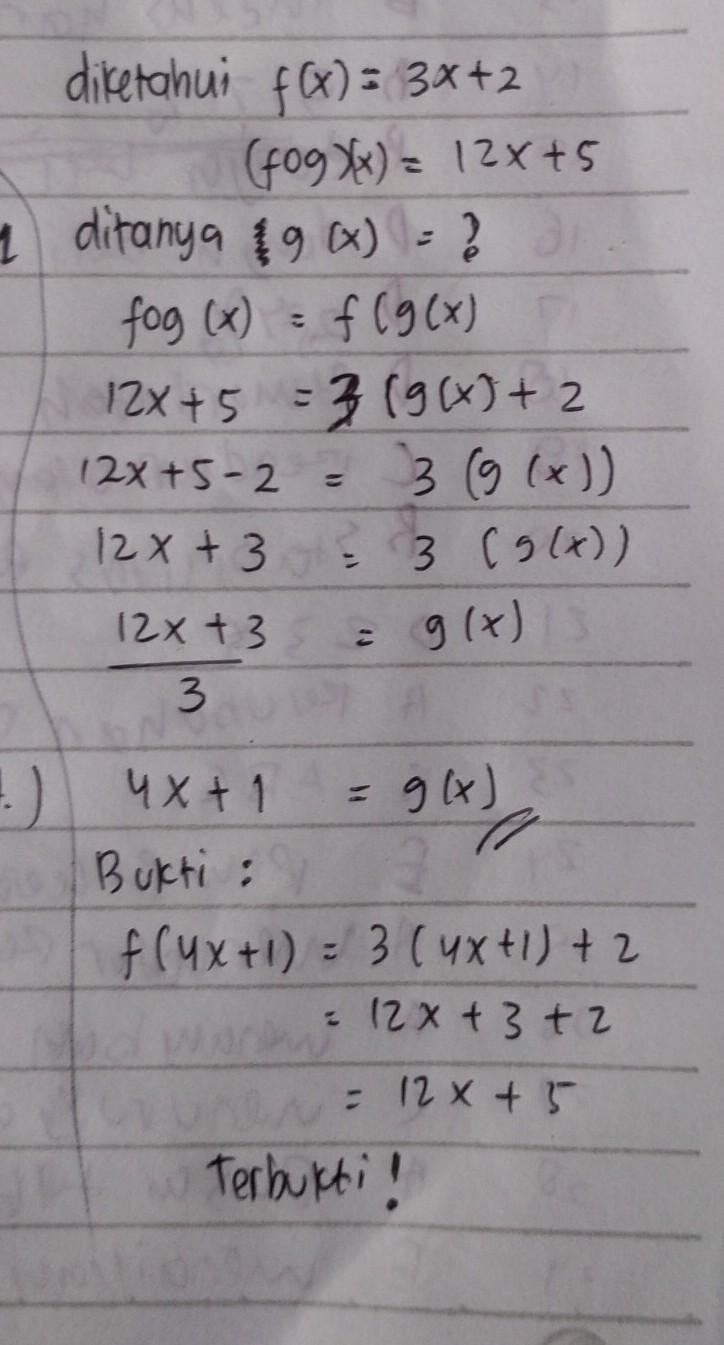 diketahui f(x) = 3x+2
(fog)(x) = 12x+5
ditanya g (x) = ?
fog (x) = f(g(x)
12x+5 = 3 (g(x)+ 2
12x+5-2 = 3 (g (x))
12x + 3 = 3 (g(x))
12x + 3 = g(x)
3
.) 4x + 1 = g(x)
Bukti :
f(4x+1) = 3(4x+1) + 2
= 12x + 3 + 2
= 12x + 5
Terbukti!